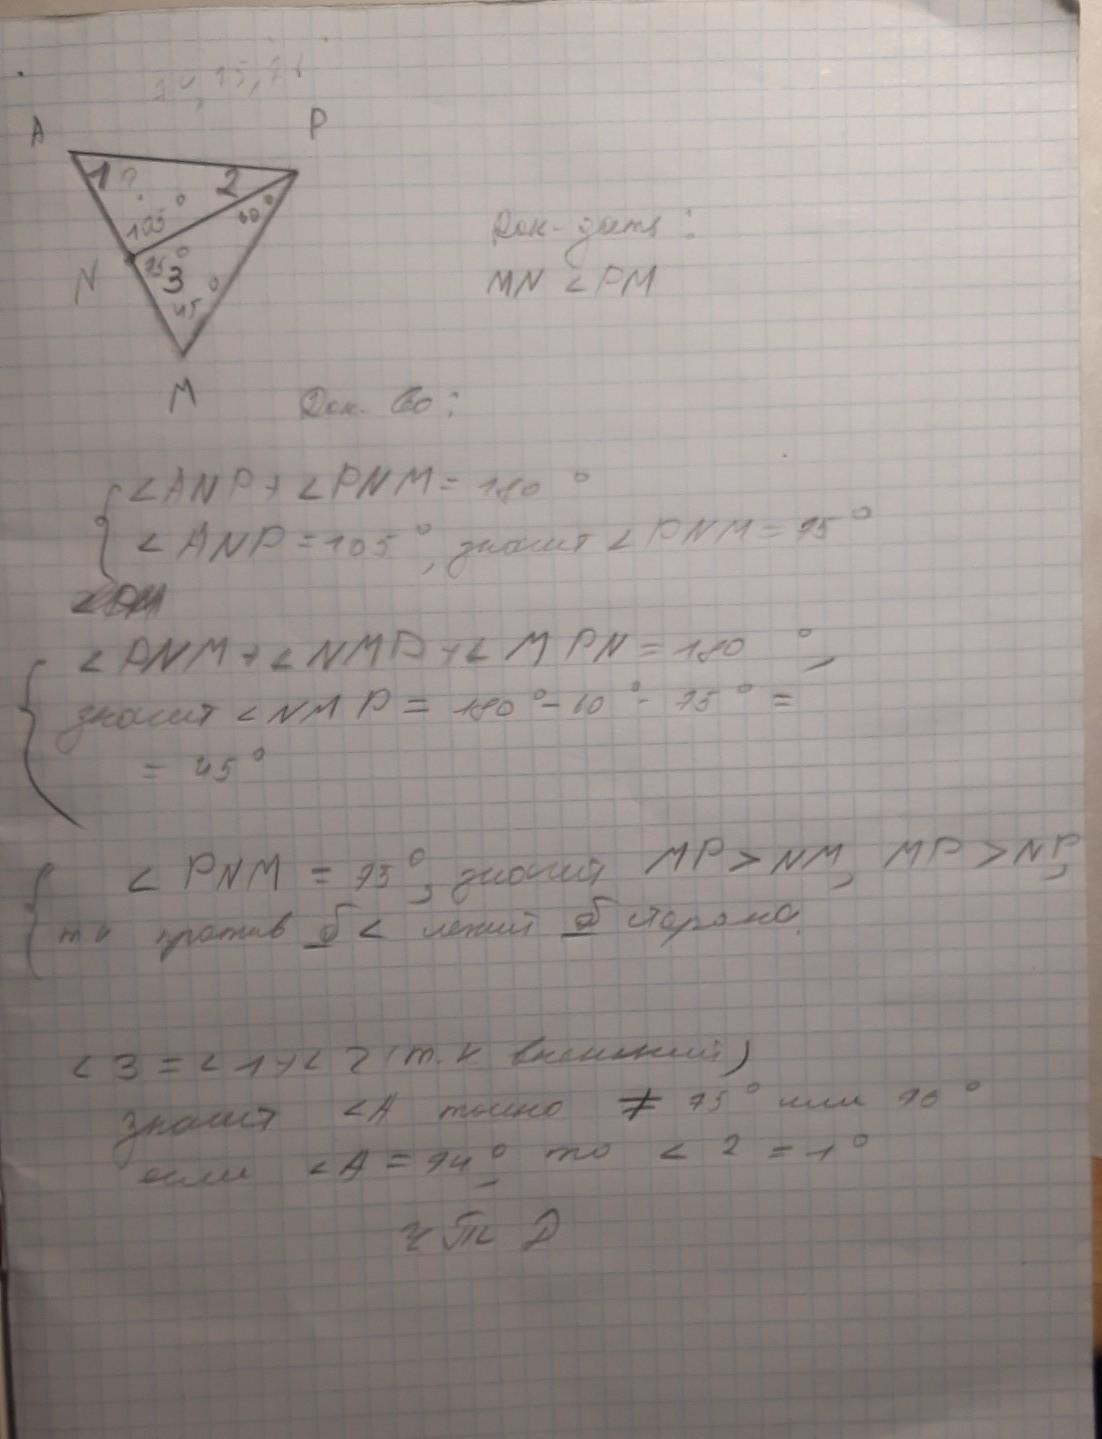 74, 75, 76
A
P
1 ? 2
105°
60°
N
75°
3
45°
M
Док-зать:
MN < PM
Док. во:
∠ANP + ∠PNM = 180°
∠ANP = 105°, значит ∠PNM = 75°
∠PNM + ∠NMP + ∠MPN = 180°,
значит ∠NMP = 180° - 60° - 75° =
= 45°
∠PNM = 75°, значит MP > NM, MP > NP,
тк против б ∠ лежит б сторона.
∠3 = ∠1 + ∠2 (т.к внешний)
значит ∠A точно ≠ 75° или 76°
если ∠A = 74°, то ∠2 = 1°
чтД